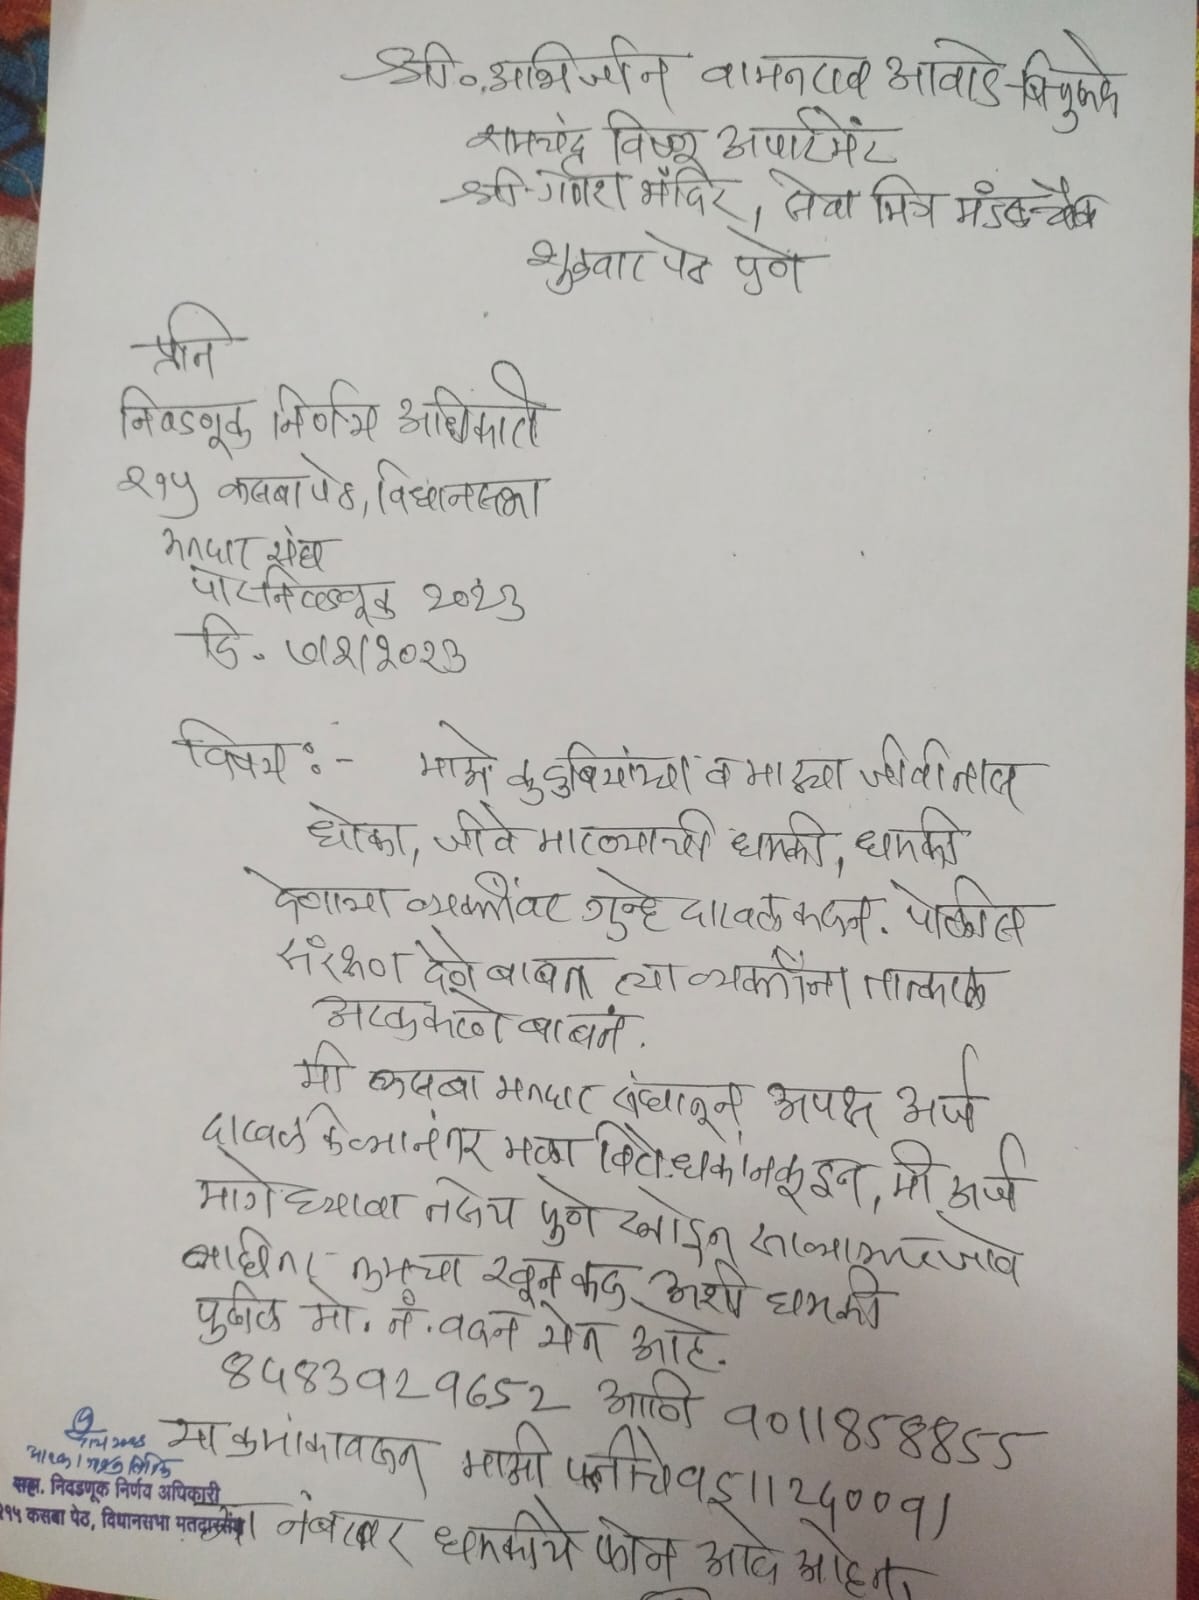 श्री. अभिजीत वामनराव आवाडे-बिचुकले
रामचंद्र विष्णू अपार्टमेंट
श्री गणेश मंदिर, सेवा मित्र मंडळ चौक
शुक्रवार पेठ पुणे
प्रति
निवडणूक निर्णय अधिकारी
२१५ कसबा पेठ, विधानसभा
मतदार संघ
पोटनिवडणूक २०२३
दि. ७/२/२०२३
विषय :- माझे कुटुंबियांच्या व माझ्या जीवीतास
धोका, जीवे मारण्याची धमकी, धमकी
देणाऱ्या व्यक्तींवर गुन्हे दाखल करून. पोलीस
संरक्षण देणे बाबत त्या व्यक्तींना तात्काळ
अटक करणे बाबत.
मी कसबा मतदार संघातून अपक्ष अर्ज
दाखल केल्यानंतर मला विरोधकांनकडून, मी अर्ज
मागे घ्यावा तसेच पुणे सोडून साताऱ्यात जावे
नाहीतर तुमचा खून करू अशी धमकी
पुढील मो. नं. वरून येत आहे.
8483929652 आणि 9011858855
या क्रमांकावरून माझी पत्नीचे
नंबरवर धमकीचे फोन आले आहेत.
सहा. निवडणूक निर्णय अधिकारी
२१५ कसबा पेठ, विधानसभा मतदारसंघ